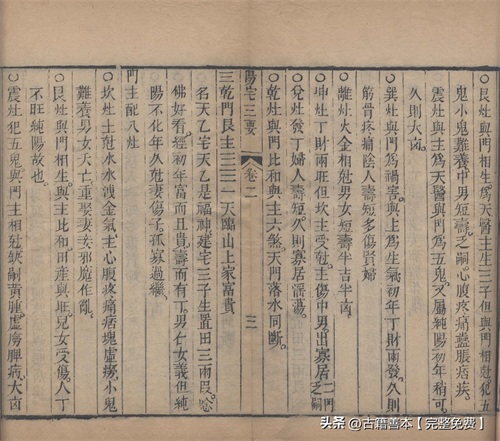 ○艮灶與門相生與主相尅犯五
鬼小鬼難養中男短壽乏嗣心腹疼痛蠱脹痞疾
震灶與主爲天醫與門爲五鬼又屬純陽初年稍可
久則大凶
○巽灶與門爲禍害與主爲生氣初年丁財兩發久則
筋骨疼痛陰人壽短多傷賢婦
○離灶火金相尅男女短壽半吉半凶
○坤灶丁財兩旺但坎主受尅主傷中男出寡居乏嗣二門
○兌灶發丁婦人壽短久則寡居淫蕩
○乾灶與門比和與主六煞天門落水同斷
陽宅三要
卷二
三
三乾門艮主 天臨山上家富貴
名天乙宅天乙是福神建宅三子生置田三兩叚念
佛好看經初年富而且貴壽而有丁男仁女義但純
陽不化年久尅妻傷子孤寡過繼
門主配八灶
○坎灶主尅水水洩金氣主心腹疼痛痞塊虛癆小鬼
難養男女夭亡重娶妻妾邪魔作亂
○艮灶與門相生與主比和田產興旺兒女受傷人丁
不旺純陽故也
○震灶犯五鬼與門主相尅缺嗣黃腫虛癆脾病大凶
头条 @古籍善本【完整免费】